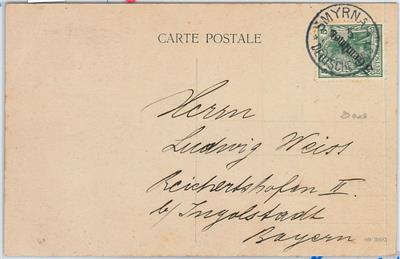 CARTE POSTALE
SMYRNA
Herrn
Ludwig Weiss
Reichertshofen II.
b/ Ingolstadt
Bayern